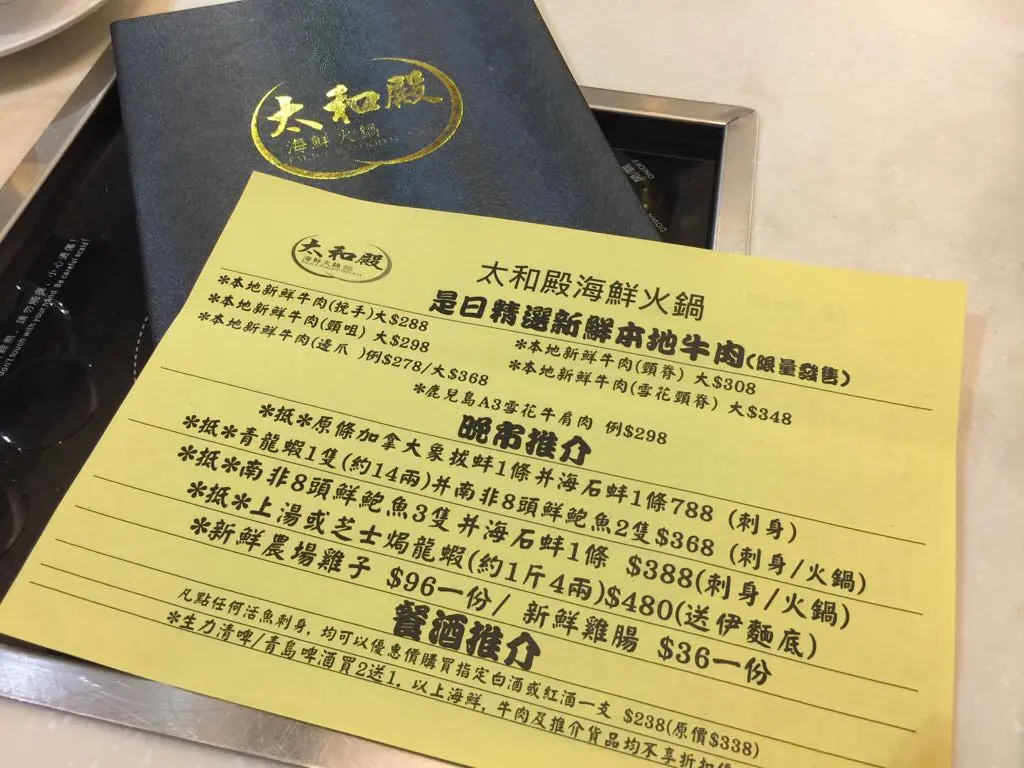 太和殿
海鮮火鍋
ON/OFF
DOWN
小心燙傷!
Don't touch with your hand. Be careful scald!
太和殿
海鮮火鍋
太和殿海鮮火鍋
是日精選新鮮本地牛肉(限量發售)
*本地新鮮牛肉(挽手)大$288
*本地新鮮牛肉(頸咀) 大$298
*本地新鮮牛肉(頸脊) 大$308
*本地新鮮牛肉(邊爪 )例$278/大$368
*本地新鮮牛肉(雪花頸脊) 大$348
*鹿兒島A3雪花牛肩肉 例$298
晚市推介
*抵*原條加拿大象拔蚌1條并海石蚌1條788 (刺身)
*抵*青龍蝦1隻(約14兩)并南非8頭鮮鮑魚2隻$368 (刺身/火鍋)
*抵*南非8頭鮮鮑魚3隻并海石蚌1條 $388(刺身/火鍋)
*抵*上湯或芝士焗龍蝦(約1斤4兩)$480(送伊麵底)
*新鮮農場雞子 $96一份/ 新鮮雞腸 $36一份
餐酒推介
凡點任何活魚刺身, 均可以優惠價購買指定白酒或紅酒一支 $238(原價$338)
*生力清啤/青島啤酒買2送1. 以上海鮮, 牛肉及推介貨品均不享折扣優